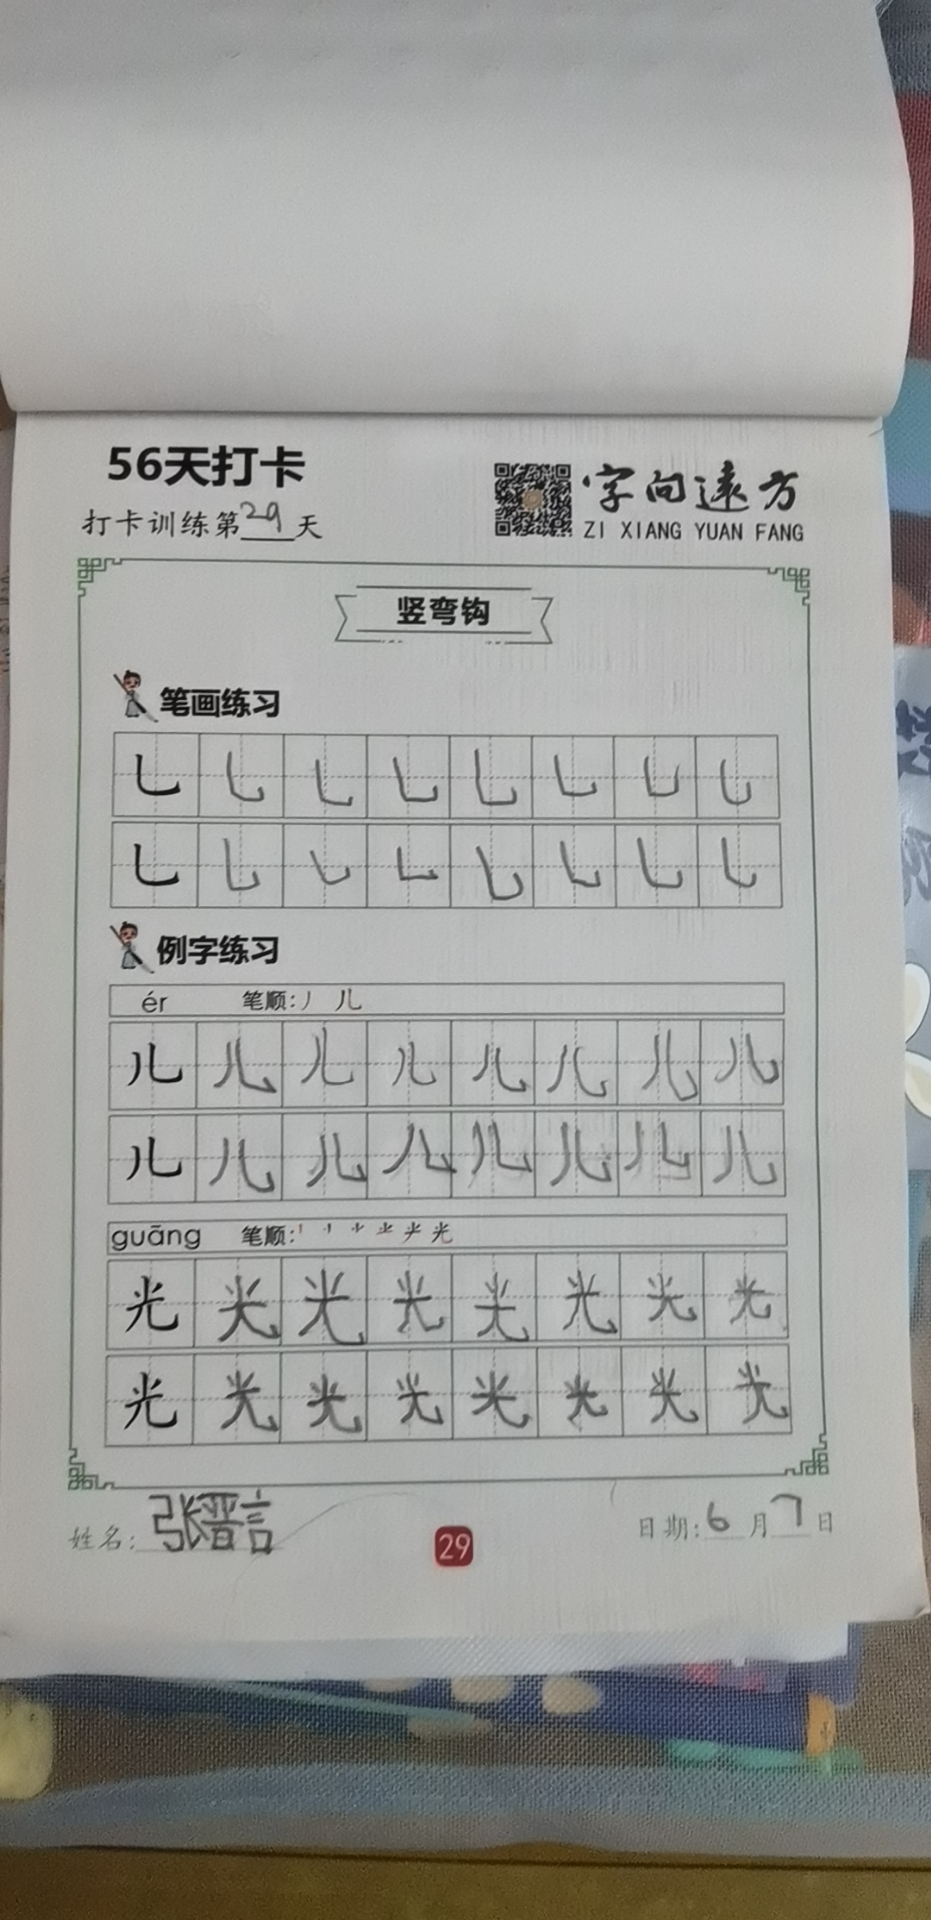 56天打卡
打卡训练第29天
字向远方
ZI XIANG YUAN FANG
竖弯钩
笔画练习
乚 乚 乚 乚 乚 乚 乚 乚
乚 乚 乚 乚 乚 乚 乚 乚
例字练习
ér 笔顺:丿 儿
儿 儿 儿 儿 儿 儿 儿 儿
儿 儿 儿 儿 儿 儿 儿 儿
guāng 笔顺:
光 光 光 光 光 光 光 光
光 光 光 光 光 光 光 光
姓名:张晋言
29
日期:6月7日